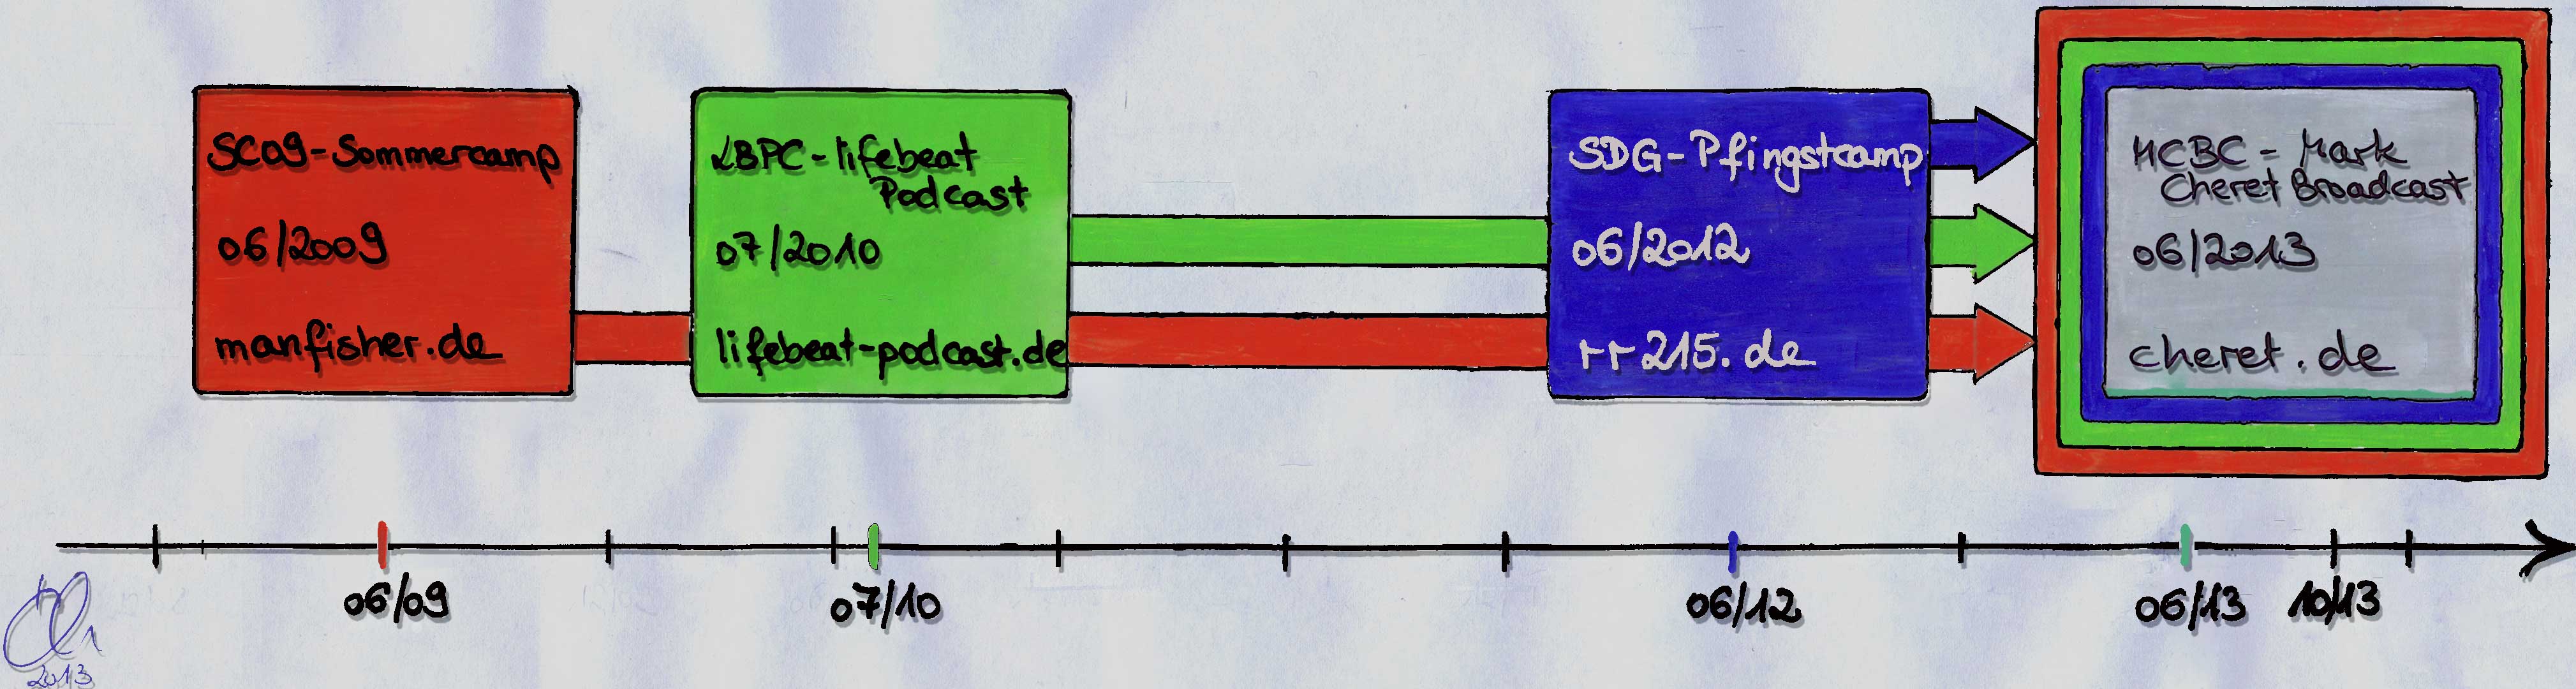 SC09-Sommercamp
06/2009
manfisher.de
LBPC-lifebeat
Podcast
07/2010
lifebeat-podcast.de
SDG-Pfingstcamp
06/2012
rr215.de
MCBC - Mark
Cheret Broadcast
06/2013
cheret.de
06/09
07/10
06/12
06/13
10/13
2013